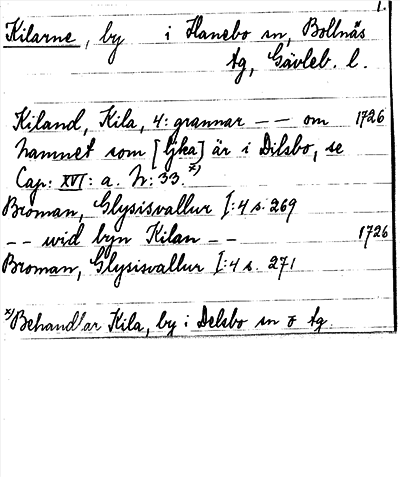 1.
Kilarne, by i Hanebo sn, Bollnäs
tg, Gävleb. l.
Kiland, Kila, 4: grannar – – om 1726
hamnet som [ljka] är i Dilsbo, se
Cap: XVI: a. N: 33. x)
Broman, Glysisvallur I:4 s. 269
– – wid byn Kilan – – 1726
Broman, Glysisvallur I:4 s. 271
x) Behandlar Kila, by i Delsbo sn o tg.